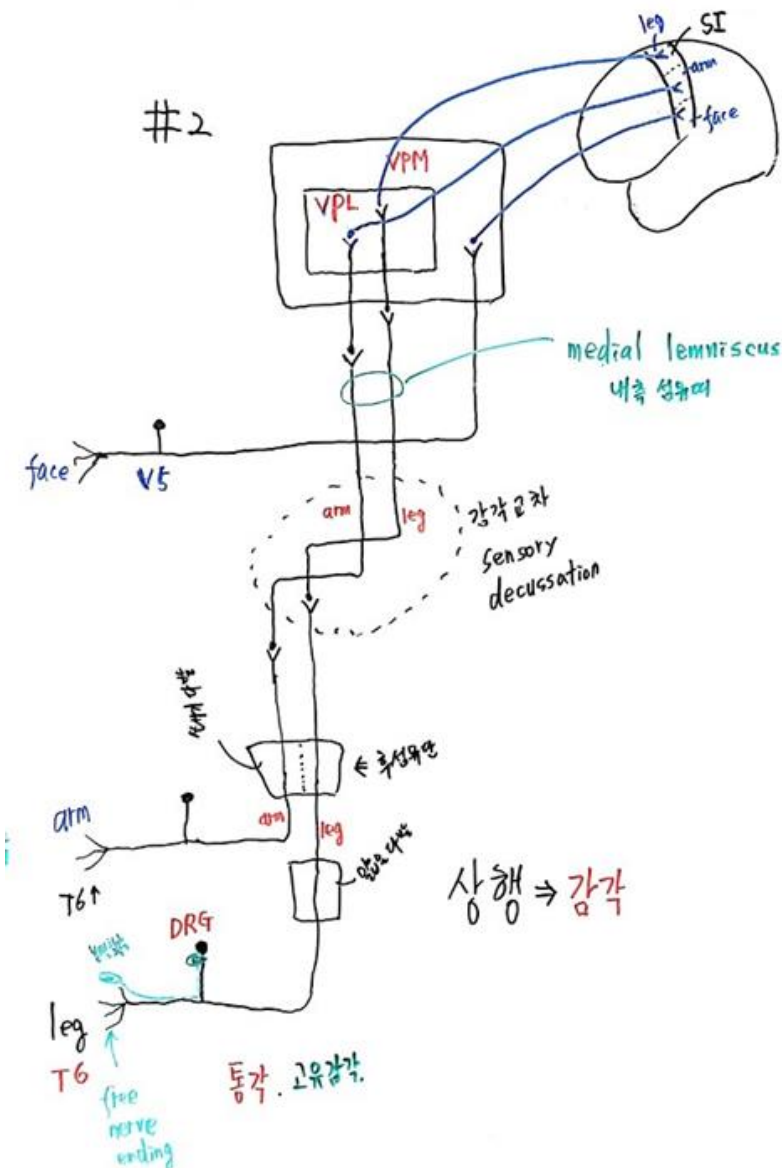 leg
SI
arm
face
#2
VPM
VPL
medial lemniscus
내측 섬유띠
face
V5
arm
leg
감각교차
sensory
decussation
쐐기다발
⇐ 후섬유단
arm
arm
leg
T6↑
얇은다발
상행 ⇒ 감각
DRG
leg
T6
free
nerve
ending
통각. 고유감각.